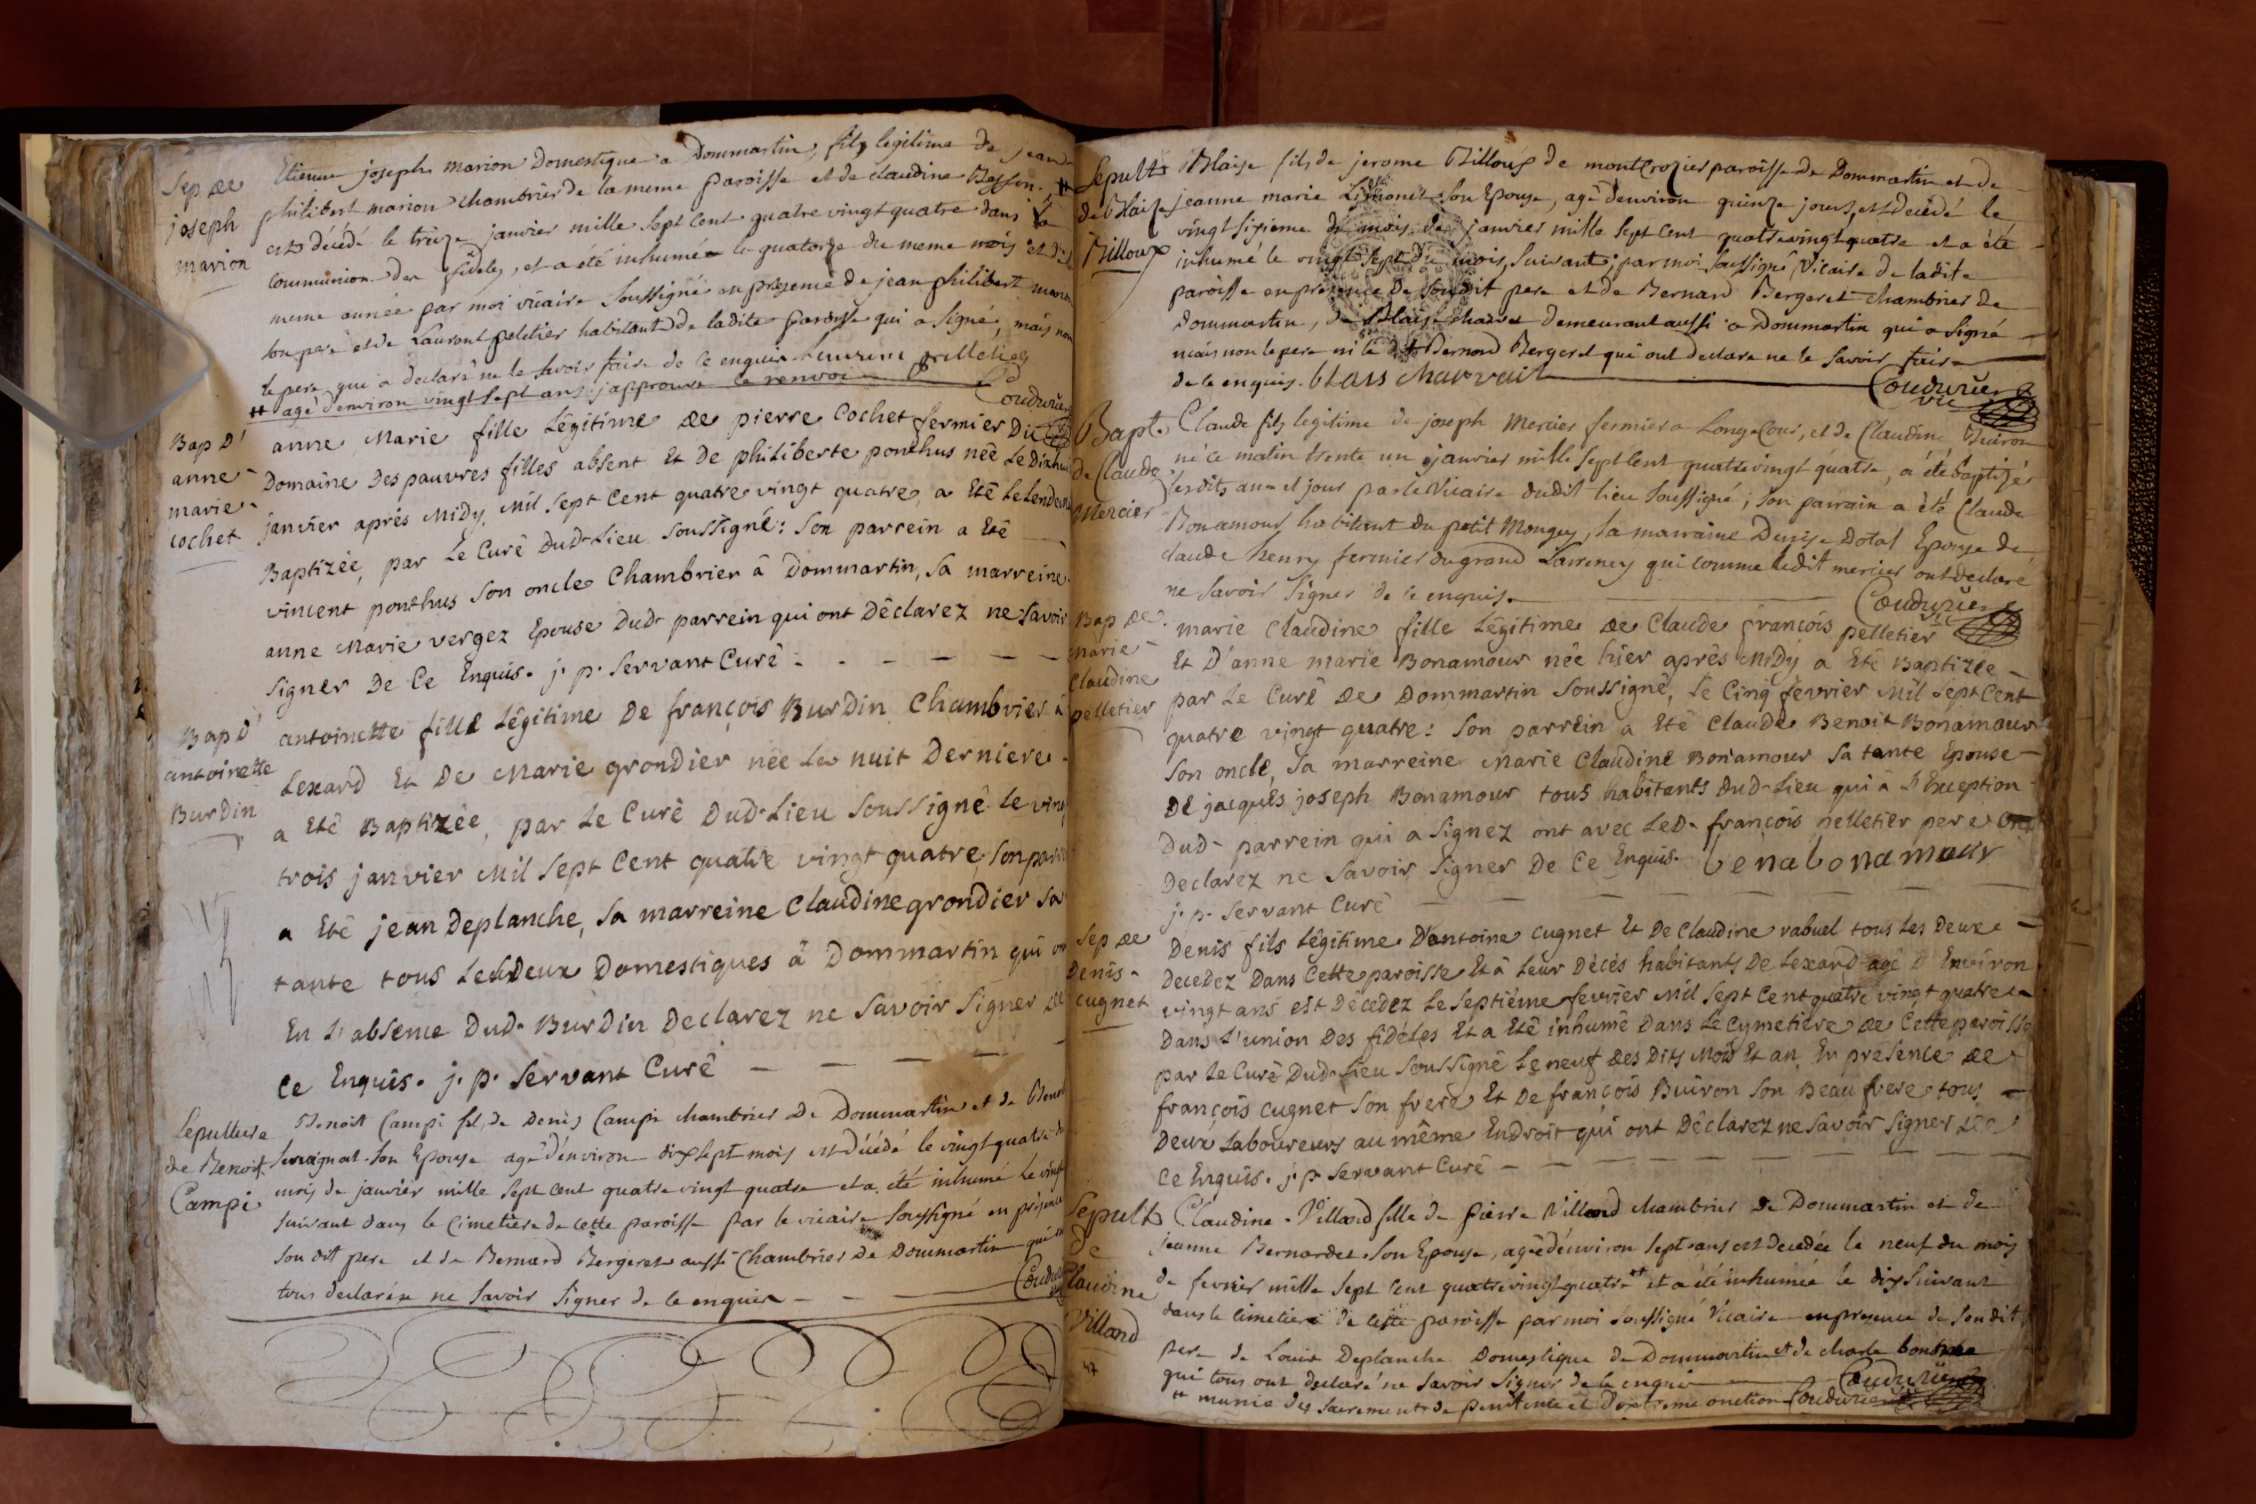 Sep. de
joseph
marion
Etienne joseph marion Domestique a Dommartin, fils legitime de jean
philibert marion chambrier de la meme paroisse et de claudine Besson #
est décédé le treize janvier mille sept cent quatre vingt quatre dans la
communion des fideles, et a été inhumé le quatorze du meme mois et de la
meme année par moi vicaire soussigné en presence de jean philibert marion
son pere et de Laurent peletier habitant de ladite paroisse qui a signé, mais non
le pere qui a declaré ne le savoir faire de ce enquis Laurent pelletier
# agé d'environ vingt sept ans j'approuve le renvoi Coudurier
Bap d'
anne
marie
cochet
anne Marie fille Légitime de pierre Cochet fermier Du
Domaine Des pauvres filles absent Et De philiberte ponthus née Le Dixhuit
janvier aprés Midy, Mil Sept Cent quatre vingt quatre, a Eté Le Lendemain
Baptizée, par Le Curé Dud. Lieu soussigné : Son parrein a Eté
vincent ponthus Son oncle Chambrier â Dommartin, Sa marreine
anne Marie vergez Epouse Dud. parrein qui ont Déclarez ne Savoir
Signer De Ce Enquis. j. p. Servant Curé
Bap d'
antoinette
Burdin
antoinette fille Légitime De françois Burdin Chambrier à
Lexard Et De Marie grondier née La nuit Derniere
a Eté Baptizée, par Le Curé Dud. Lieu Soussigné Le vingt
trois janvier Mil Sept Cent quatre vingt quatre, Son parrein
a Eté jean Deplanche, Sa marreine Claudine grondier Sa
tante tous Les Deux Domestiques â Dommartin qui ont
En L'absence Dud. Burdin Declarez ne Savoir Signer de
Ce Enquis. j. p. Servant Curé
Sepulture
de Benoit
Campi
Benoit Campi fils de Denis Campi chambrier de Dommartin et de
son Epouse agé d'environ dix sept mois est décédé le vingt quatre du
mois de janvier mille sept cent quatre vingt quatre et a été inhumé le vingt
suivant dans le cimetiere de cette paroisse par le vicaire soussigné en présence
son dit pere et de Bernard Bergeret aussi Chambrier de Dommartin qui ont
tous declaré ne savoir signer de ce enquis Coudurier
Sepult
de Blaise
Billoux
Blaise fils de jerome Billoux de montcrozier paroisse de Dommartin et de
jeanne marie Limonet son Epouse, agé d'environ quinze jours, est décédé le
vingt sixieme du mois de janvier mille sept cent quatre vingt quatre et a été
inhumé le vingt sept du mois, suivant; par moi soussigné vicaire de ladite
paroisse en presence de son dit pere et de Bernard Bergeret chambrier de
Dommartin, de Blaise demeurant aussi a Dommartin qui a signé
mais non le pere ni le dt Bernard Bergeret qui ont declaré ne le savoir faire
de ce enquis. blais Coudurier
vic
Bapt.
de Claude
Mercier
Claude fils legitime de joseph Mercier fermier a Longecour, et de Claudine Buiron
né ce matin trente un janvier mille sept cent quatre vingt quatre, a été baptizé
lesdits an et jour par le Vicaire dudit lieu soussigné; son parrain a été Claude
Bonamour habitant du petit Monguy, la marraine Denise Dotal Epouse de
claude henry fermier du grand qui comme ledit mercier ont declaré
ne savoir signer de ce enquis. Coudurier
vic
Bap de
Marie
Claudine
pelletier
marie Claudine fille Légitime De Claude françois pelletier
Et D'anne marie Bonamour née hier aprés Midy a Eté Baptizée
par Le Curé De Dommartin Soussigné, Le Cinq fevrier Mil Sept Cent
quatre vingt quatre : Son parrein a Eté Claude Benoit Bonamour
Son oncle, Sa marreine Marie Claudine Bonamour Sa tante Epouse
De jacques joseph Bonamour tous habitants Dud. Lieu qui â L'Exception
Dud. parrein qui a Signez ont avec Led. françois pelletier pere
Declarez ne Savoir Signer De Ce Enquis. benabonamour
j. p. Servant Curé
Sep de
Denis
cugnet
Denis fils Légitime D'antoine cugnet Et De Claudine rabuel tous Les Deux
Decedez Dans Cette paroisse Et â Leur Décès habitants De Lexard agé D'Environ
vingt ans est Décedez Le Septiéme fevrier Mil Sept Cent quatre vingt quatre
Dans L'union Des fidéles Et a Eté inhumé Dans Le Cymetiere de Cette paroisse
par Le Curé Dud. Lieu Soussigné Le neuf Des Dits Mois Et an, En présence De
françois cugnet Son frere Et De françois Buiron Son Beau frere tous
Deux Laboureurs au même Endroit qui ont Déclarez ne Savoir Signer De
Ce Enquis. j. p. Servant Curé
Sepult
de
Claudine
Villard
Claudine Villard fille de pierre Villard chambrier de Dommartin et de
jeanne Bernardet son Epouse, agée d'environ sept ans est decedée le neuf du mois
de fevrier mille sept cent quatre vingt quatre # et a été inhumée le dix suivant
dans le cimetiere de cette paroisse par moi soussigné Vicaire en presence de son dit
pere de Louis Deplanche Domestique de Dommartin et de charle
qui tous ont declaré ne savoir signer de ce enquis Coudurier
# munie des sacrements de penitence et d'extreme onction Coudurier